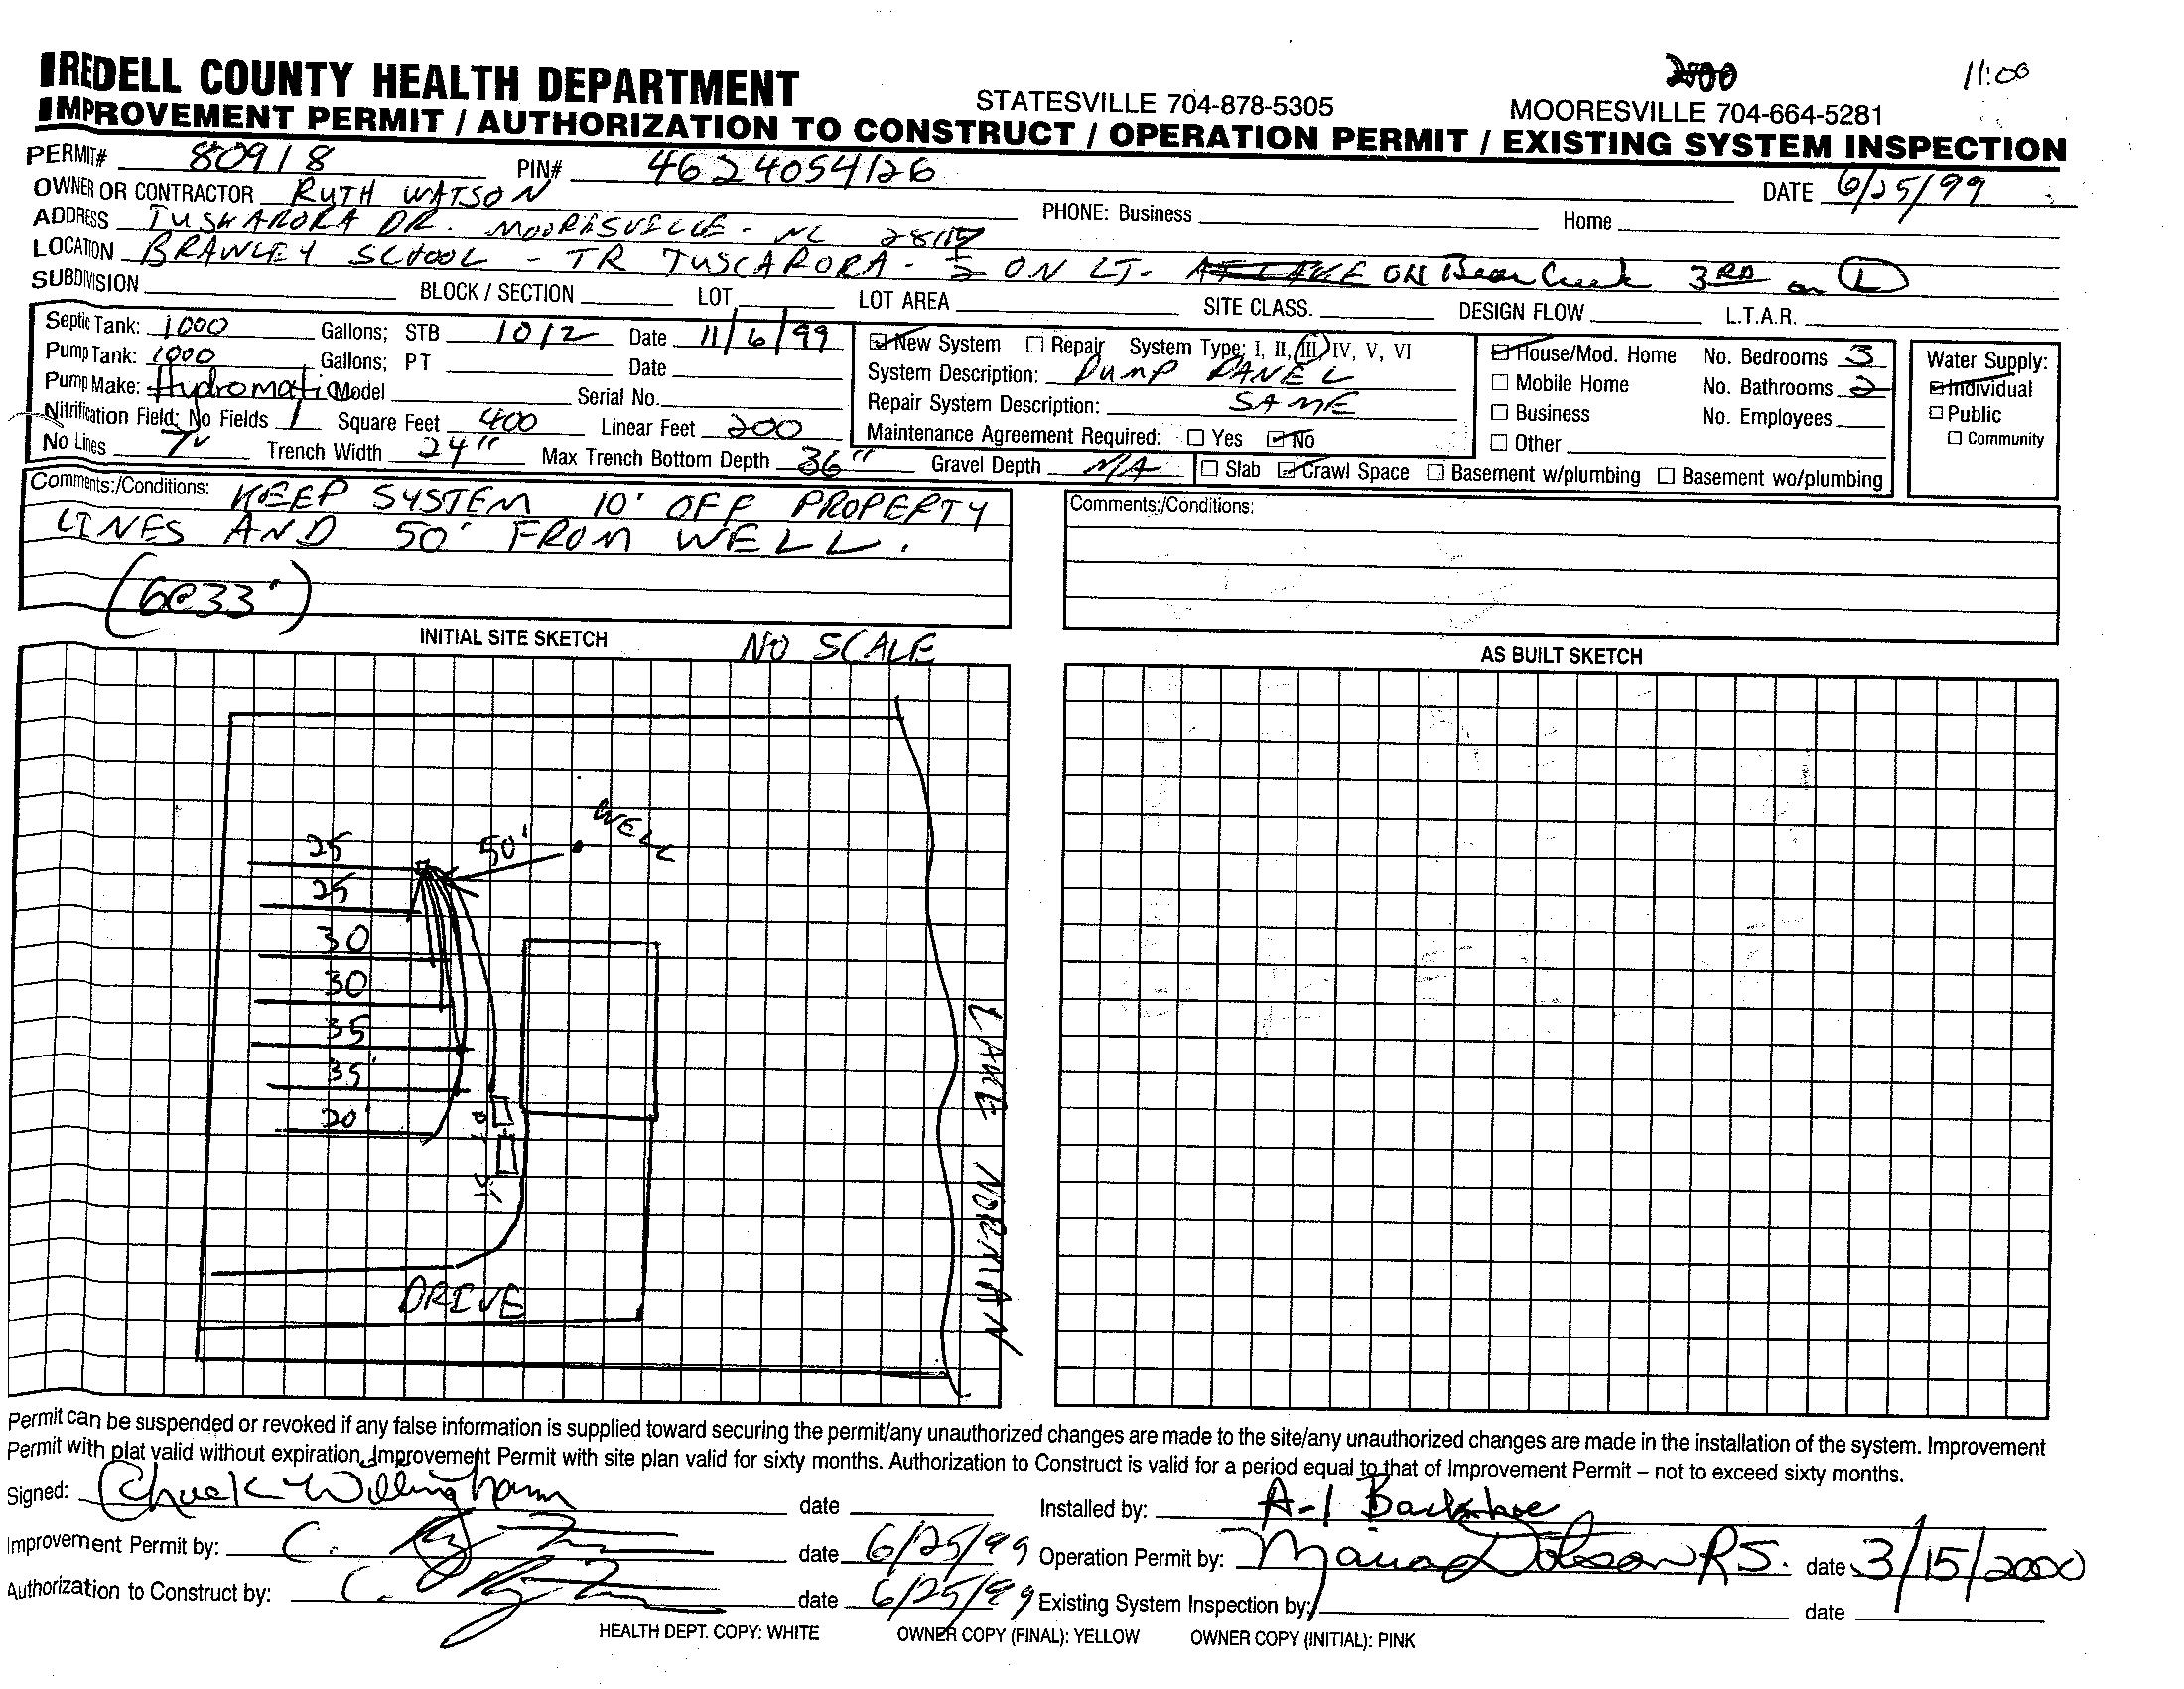 2000 11:00
IREDELL COUNTY HEALTH DEPARTMENT
STATESVILLE 704-878-5305 MOORESVILLE 704-664-5281
IMPROVEMENT PERMIT / AUTHORIZATION TO CONSTRUCT / OPERATION PERMIT / EXISTING SYSTEM INSPECTION
PERMIT# 80918 PIN# 4624054126 DATE 6/25/99
OWNER OR CONTRACTOR RUTH WATSON PHONE: Business Home
ADDRESS TUSKARORA DR. MOORESVILLE - NC 28115
LOCATION BRAWLEY SCHOOL - TR TUSCARORA - ON LT. ON Bear Creek 3RD on L
SUBDIVISION BLOCK / SECTION LOT LOT AREA SITE CLASS. DESIGN FLOW L.T.A.R.
Septic Tank: 1000 Gallons; STB 1012 Date 11/6/99
Pump Tank: 1000 Gallons; PT Date
Pump Make: Hydromatic Model Serial No.
Nitrification Field: No Fields 1 Square Feet 400 Linear Feet 200
No Lines 7 Trench Width 24" Max Trench Bottom Depth 36" Gravel Depth N/A
New System Repair System Type: I, II, III, IV, V, VI
System Description: PUMP PANEL
Repair System Description: SAME
Maintenance Agreement Required: Yes No
House/Mod. Home No. Bedrooms 3
Mobile Home No. Bathrooms 2
Business No. Employees
Other
Slab Crawl Space Basement w/plumbing Basement wo/plumbing
Water Supply:
Individual
Public
Community
Comments:/Conditions: KEEP SYSTEM 10' OFF PROPERTY
LINES AND 50' FROM WELL.
(6@33')
Comments:/Conditions:
INITIAL SITE SKETCH NO SCALE
AS BUILT SKETCH
WELL
50'
25
25
30
30
35
35'
20'
DRIVE
LAKE NORMAN
Permit can be suspended or revoked if any false information is supplied toward securing the permit/any unauthorized changes are made to the site/any unauthorized changes are made in the installation of the system. Improvement
Permit with plat valid without expiration, Improvement Permit with site plan valid for sixty months. Authorization to Construct is valid for a period equal to that of Improvement Permit – not to exceed sixty months.
Signed: Chuck Willingham date Installed by: A-1 Backhoe
Improvement Permit by: C. date 6/25/99 Operation Permit by: Maria Dobson R.S. date 3/15/2000
Authorization to Construct by: C. date 6/25/99 Existing System Inspection by: date
HEALTH DEPT. COPY: WHITE OWNER COPY (FINAL): YELLOW OWNER COPY (INITIAL): PINK